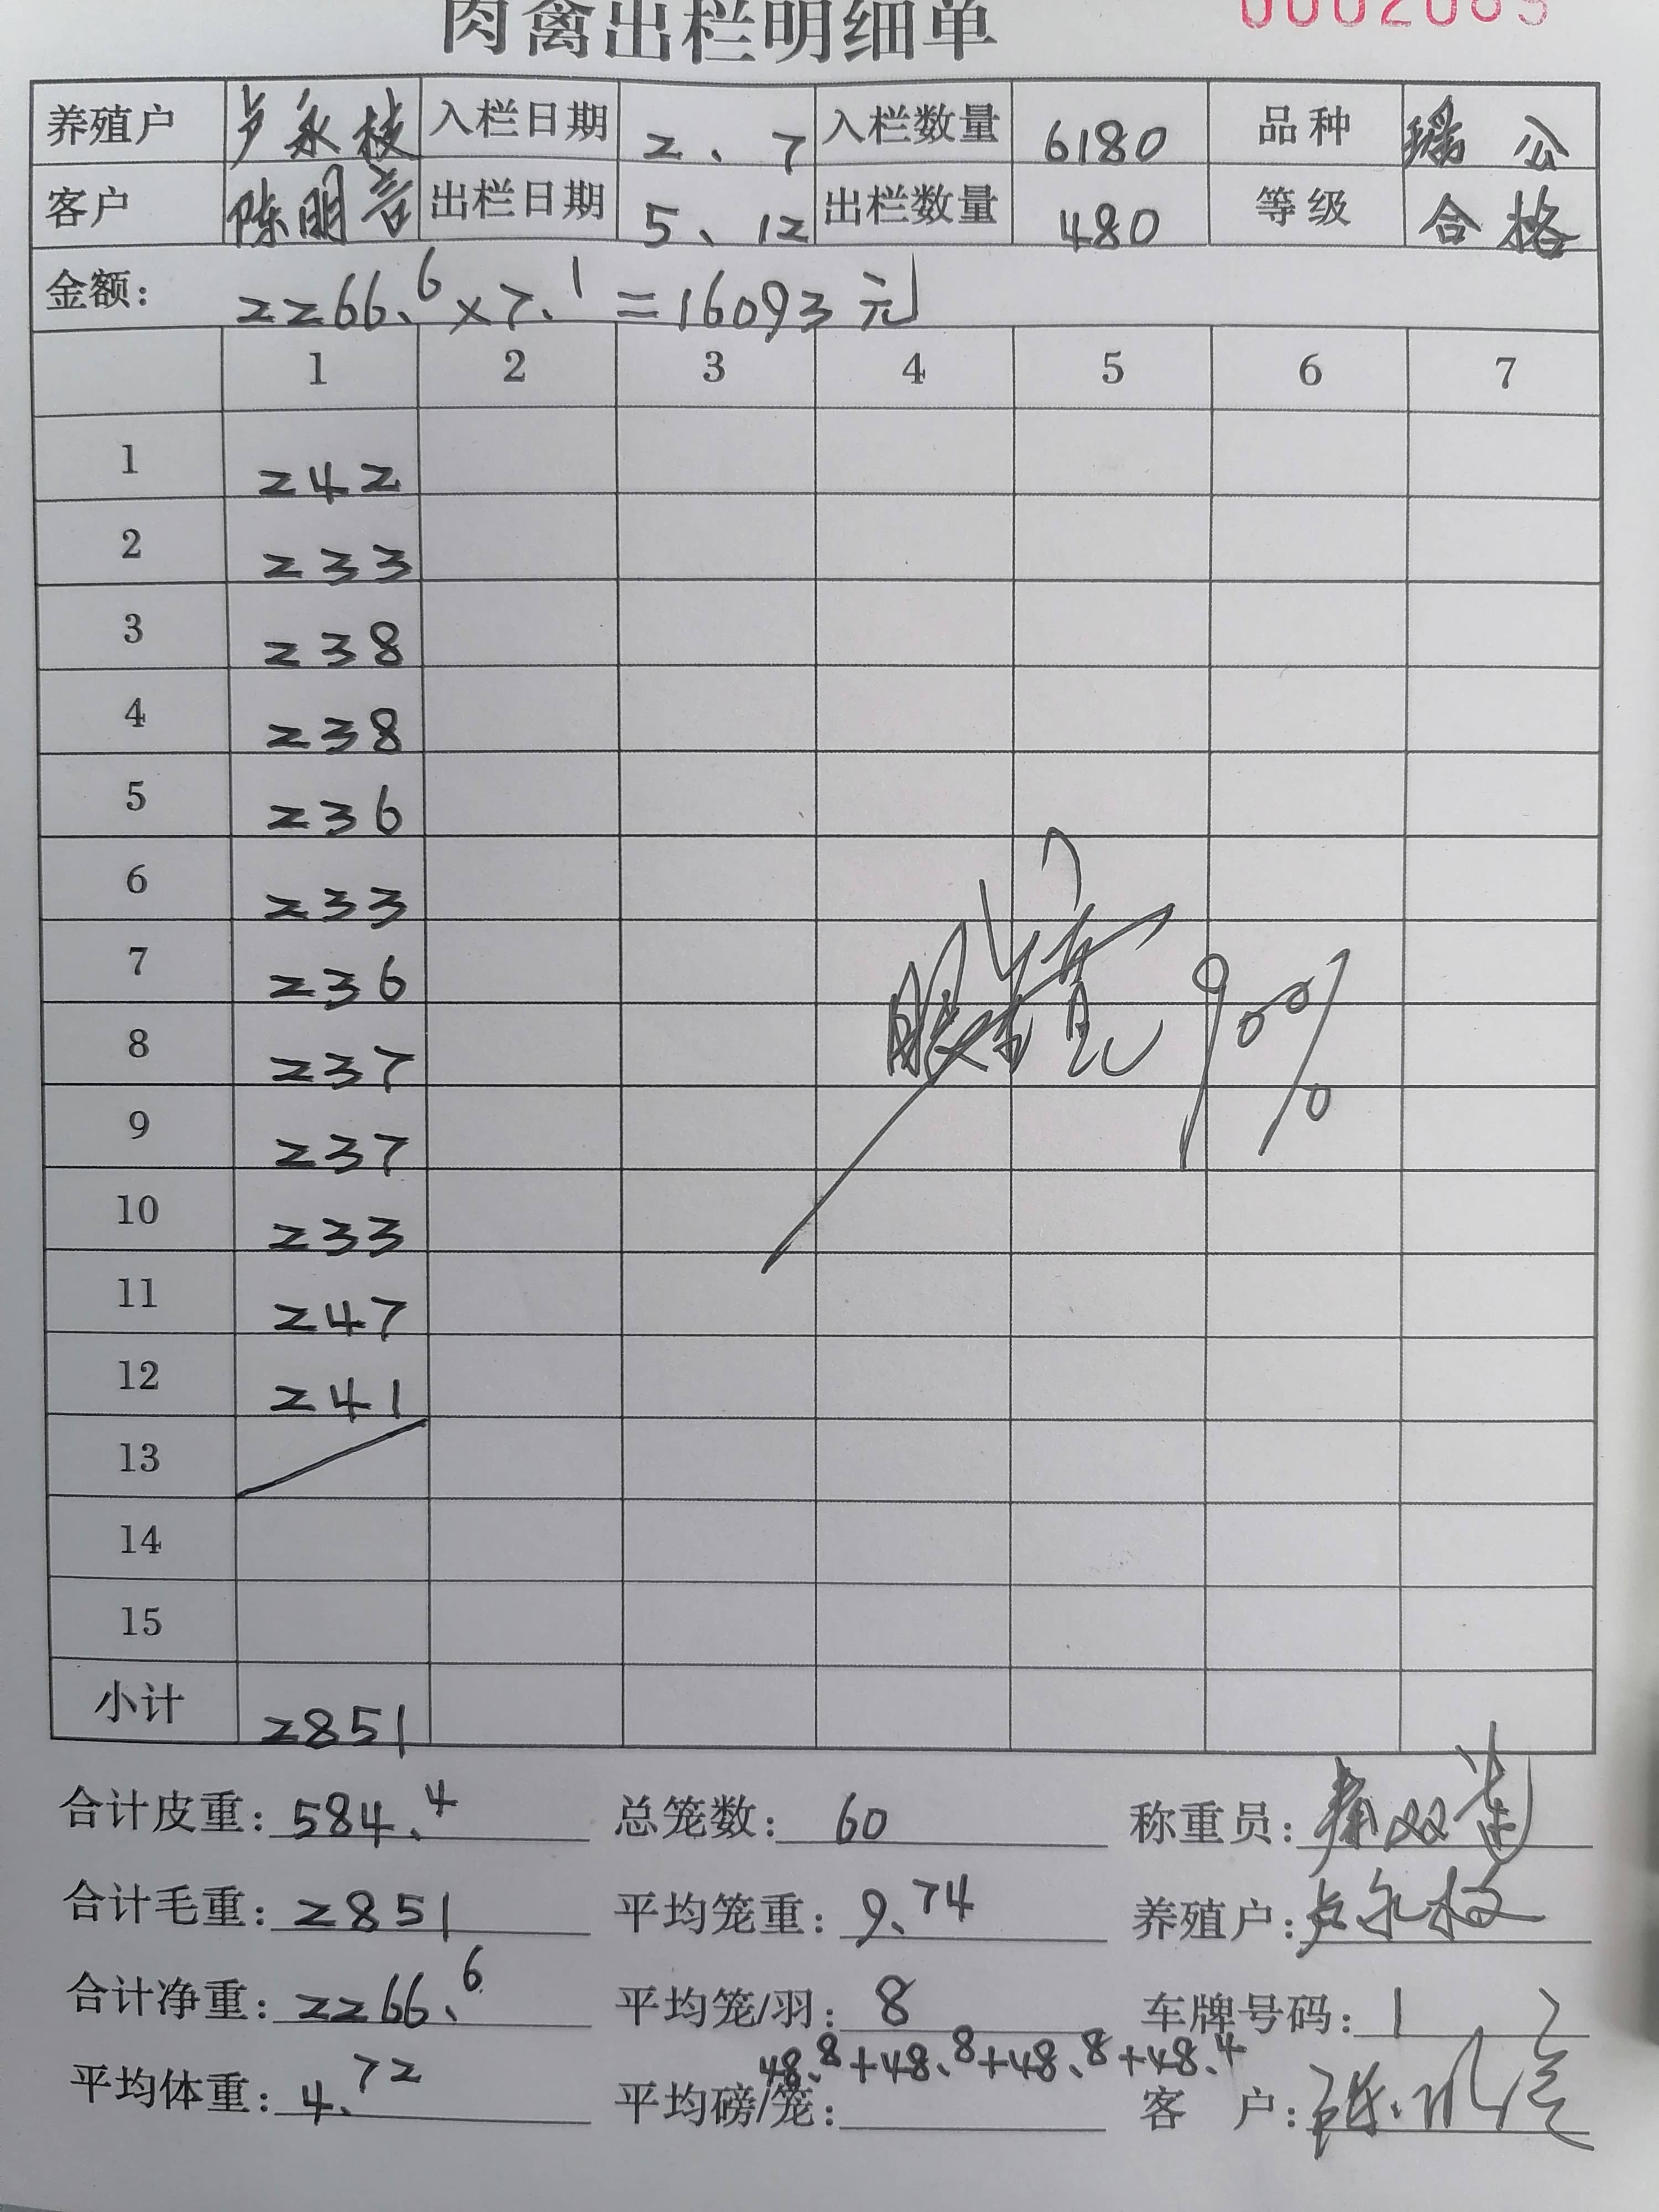 肉禽出栏明细单 0002085
养殖户 卢永枝 入栏日期 2、7 入栏数量 6180 品种 瑶公
客户 陈明言 出栏日期 5、12 出栏数量 480 等级 合格
金额: 2266.6×7.1=16093元
1 2 3 4 5 6 7
1 242
2 233
3 238
4 238
5 236
6 233
7 236
8 237
9 237
10 233
11 247
12 241
13
14
15
小计 2851
合计皮重: 584.4 总笼数: 60 称重员:
合计毛重: 2851 平均笼重: 9.74 养殖户: 卢永枝
合计净重: 2266.6 平均笼/羽: 8 车牌号码:
48.8+48.8+48.8+48.4
平均体重: 4.72 平均磅/笼: 客户: